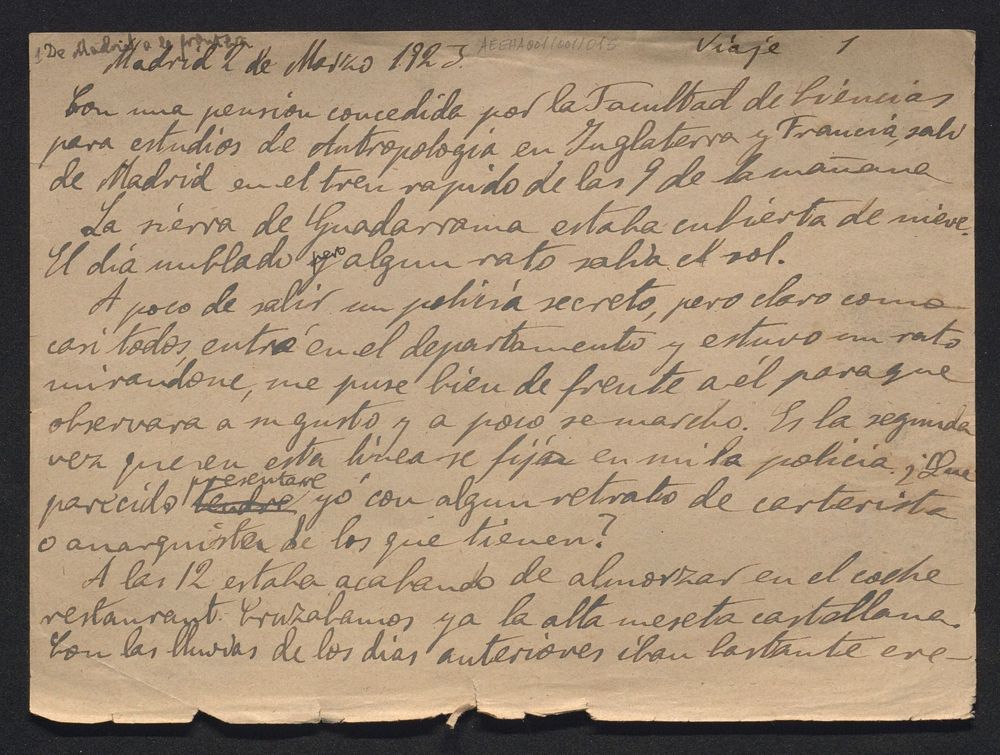 1 De Madrid a la frontera
AEEHA001/001/015
Viaje 1
Madrid 2 de Marzo 1923.
Con una pensión concedida por la Facultad de Ciencias
para estudios de Antropologia en Inglaterra y Francia, salí
de Madrid en el tren rapido de las 9 de la mañana
La sierra de Guadarrama estaba cubierta de nieve.
El día nublado pero algun rato salia el sol.
A poco de salir un policia secreto, pero claro como
casi todos entró en el departamento y estuvo un rato
mirandome, me puse bien de frente a él para que
observara a su gusto y a poco se marcho. Es la segunda
vez que en esta linea se fijan en mi la policia. ¿Que
parecido tendre presentare yo con algun retrato de carterista
o anarquista de los que tienen?
A las 12 estaba acabando de almorzar en el coche
restaurant. Cruzabamos ya la alta meseta castellana.
Con las lluvias de los dias anteriores iban bastante cre-